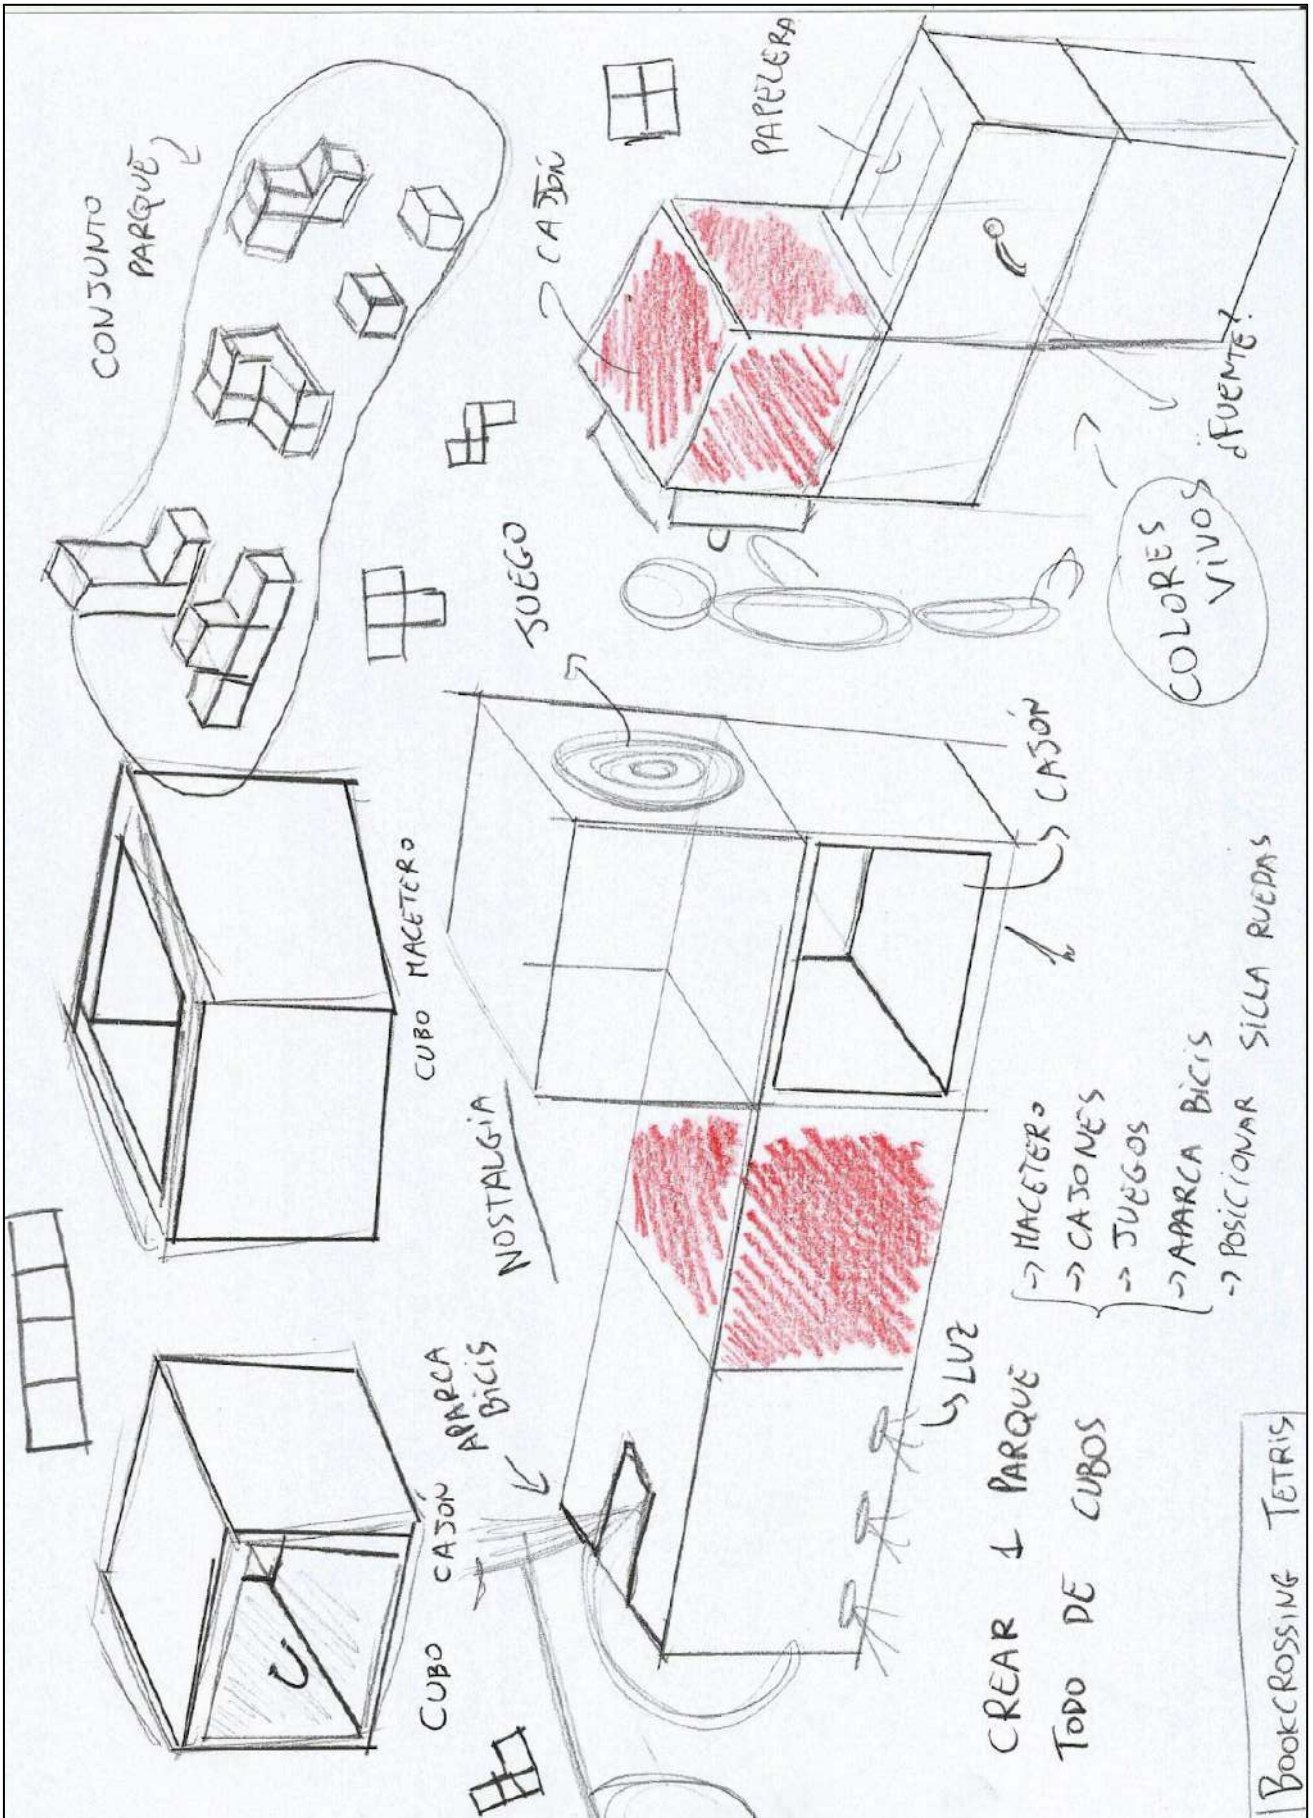 CONJUNTO
PARQUE
CUBO CAJÓN
CUBO MACETERO
APARCA
BICIS
NOSTALGIA
JUEGO
CAJÓN
PAPELERA
LUZ
CAJÓN
COLORES
VIVOS
¿FUENTE?
CREAR 1 PARQUE
TODO DE CUBOS
→ MACETERO
→ CAJONES
→ JUEGOS
→ APARCA BICIS
→ POSICIONAR SILLA RUEDAS
BOOKCROSSING TETRIS